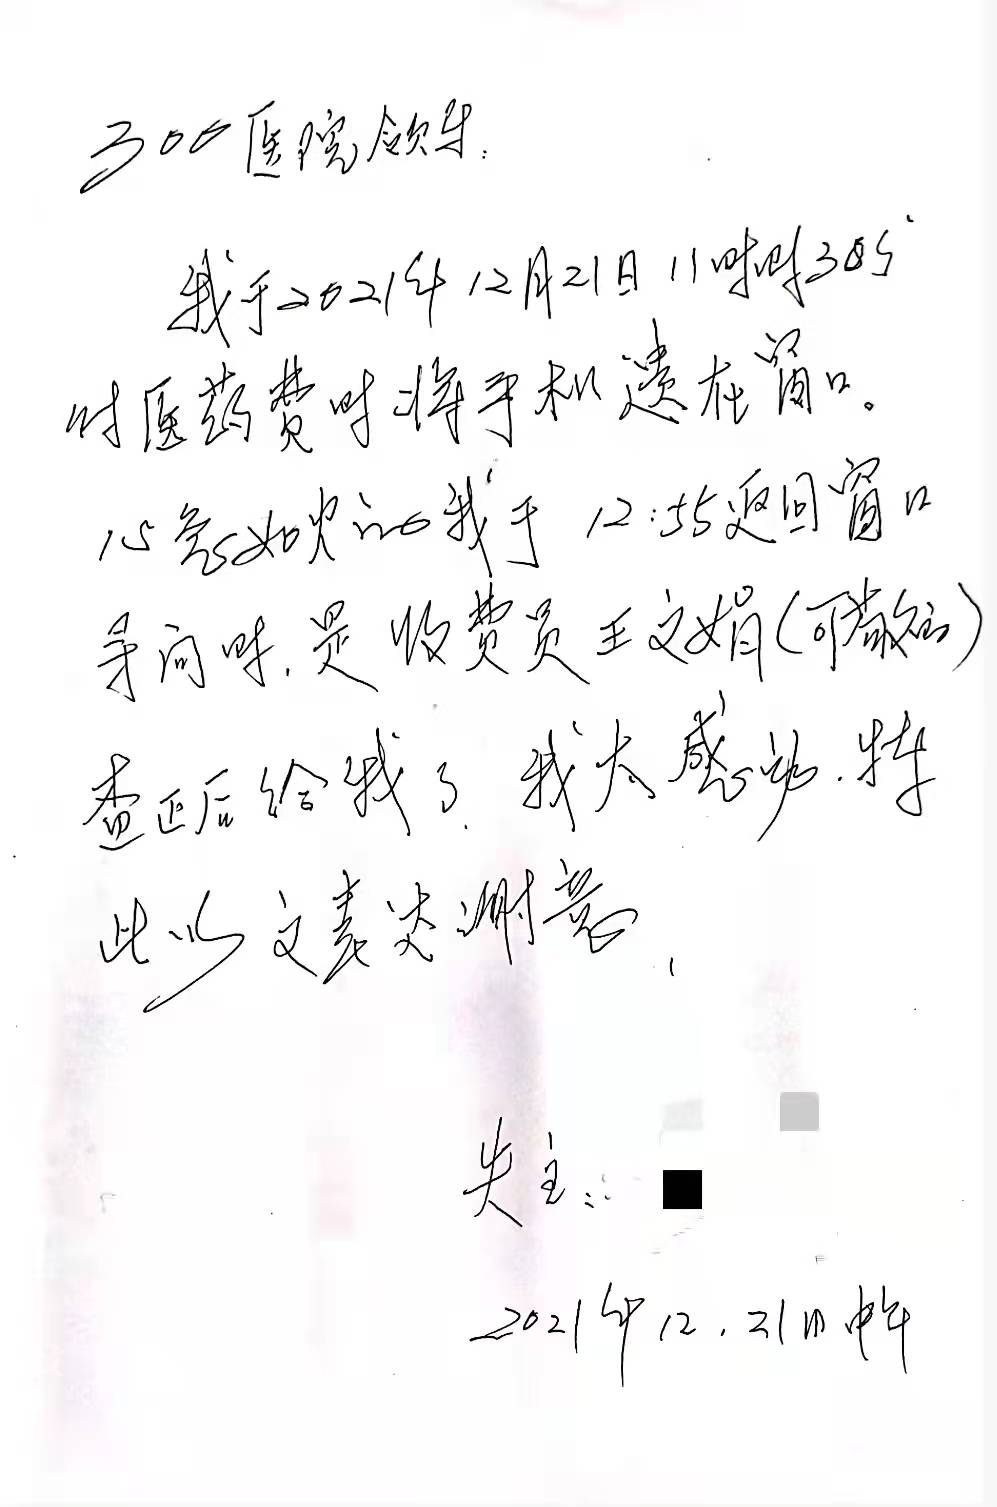 300医院领导:
我于2021年12月21日11时时30分
付医药费时将手机遗在窗口。
心急如火的我于12:55返回窗口
寻问时.是收费员王文娟(可敬的)
查证后给我了.我太感动.特
此以文表达谢意.
失主:
2021年12.21日中午